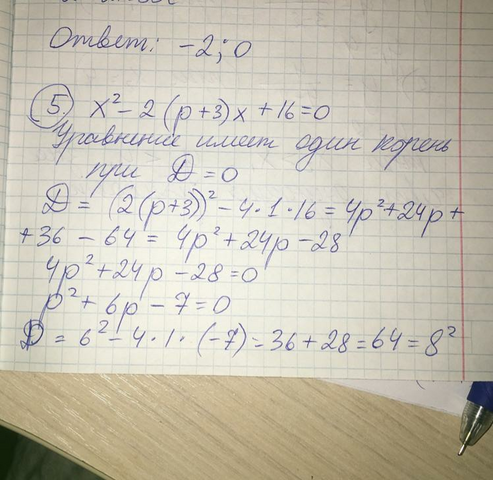 Ответ: -2; 0
5 x² - 2(p+3)x + 16 = 0
Уравнение имеет один корень
при D = 0
D = (2(p+3))² - 4·1·16 = 4p² + 24p +
+ 36 - 64 = 4p² + 24p - 28
4p² + 24p - 28 = 0
p² + 6p - 7 = 0
D = 6² - 4·1·(-7) = 36 + 28 = 64 = 8²